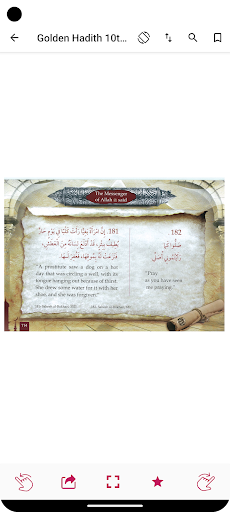 Golden Hadith 10t...
The Messenger
of Allah ﷺ said
181. إِنَّ امْرَأَةً بَغِيًّا رَأَتْ كَلْبًا فِي يَوْمٍ حَارٍّ
يُطِيفُ بِبِئْرٍ، قَدْ أَدْلَعَ لِسَانَهُ مِنَ الْعَطَشِ،
فَنَزَعَتْ لَهُ بِمُوقِهَا، فَغُفِرَ لَهَا.
"A prostitute saw a dog on a hot
day that was circling a well, with its
tongue hanging out because of thirst.
She drew some water for it with her
shoe and she was forgiven."
182.
صَلُّوا كَمَا
رَأَيْتُمُونِي أُصَلِّي
"Pray
as you have seen
me praying."
78